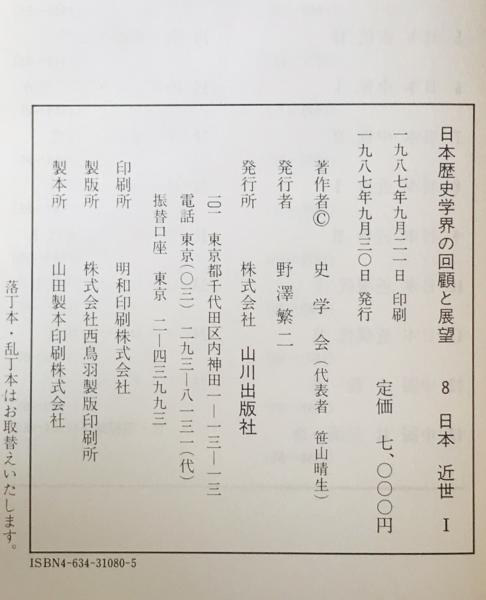 日本歴史学界の回顧と展望 8 日本 近世 Ⅰ
一九八七年九月二一日 印刷
一九八七年九月三〇日 発行
定価 七、〇〇〇円
著作者© 史学会(代表者 笹山晴生)
発行者 野澤繁二
発行所 株式会社 山川出版社
一〇一 東京都千代田区内神田一―一三―一三
電話 東京(〇三) 二九三―八一三一(代)
振替口座 東京 二―四三九九三
印刷所 明和印刷株式会社
製版所 株式会社西鳥羽製版印刷所
製本所 山田製本印刷株式会社
落丁本・乱丁本はお取替えいたします。
ISBN4-634-31080-5